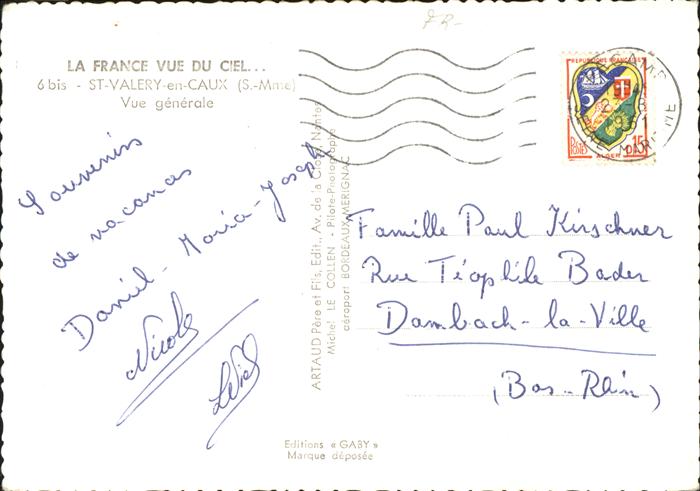 LA FRANCE VUE DU CIEL...
6 bis - ST-VALERY-en-CAUX (S.-Mme)
Vue générale
Souvenirs
de vacances
Daniel - Maria-Joseph
Nicole
ARTAUD Père et Fils, Edit., Av. de la Close, Nantes
Michel LE COLLEN - Pilote-Photographe
aéroport BORDEAUX-MERIGNAC
REPUBLIQUE FRANÇAISE
POSTES
15F
ALGER
Famille Paul Kirschner
Rue Téophile Bader
Dambach-la-Ville
(Bas-Rhin)
Editions « GABY »
Marque déposée